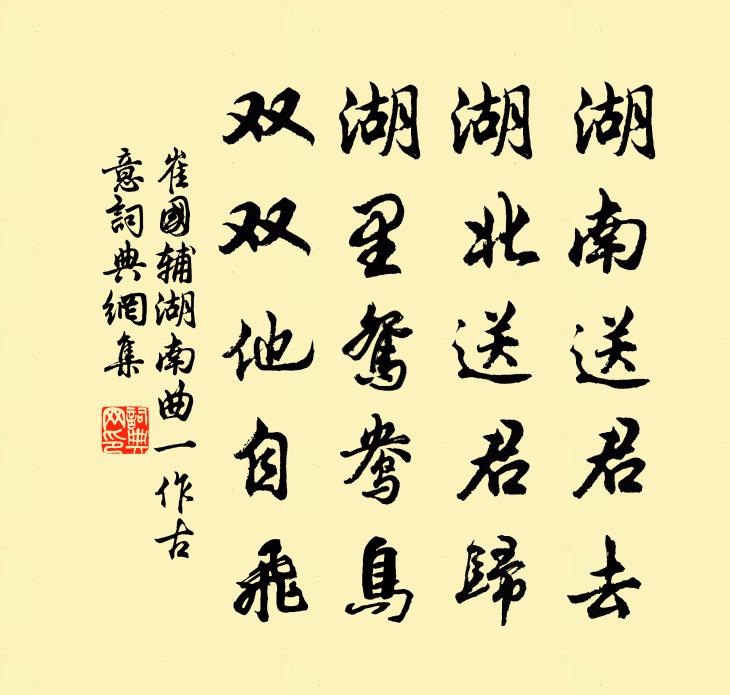 湖南送君去
湖北送君歸
湖里鴛鴦鳥
双双他自飛
崔國辅湖南曲一作古
意詞典網集
詞典
网印